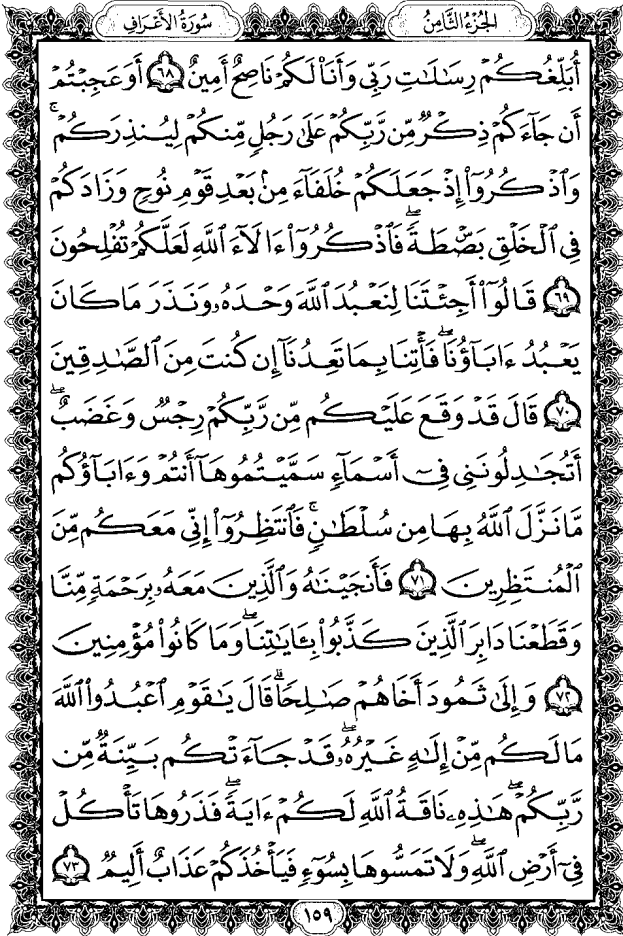 الجُزْءُ الثَّامِنُ
سُورَةُ الأَعْرَافِ
أُبَلِّغُكُمْ رِسَٰلَٰتِ رَبِّي وَأَنَا۠ لَكُمْ نَاصِحٌ أَمِينٌ ٦٨ أَوَعَجِبْتُمْ
أَن جَآءَكُمْ ذِكْرٌ مِّن رَّبِّكُمْ عَلَىٰ رَجُلٍ مِّنكُمْ لِيُنذِرَكُمْ ۚ
وَٱذْكُرُوٓا۟ إِذْ جَعَلَكُمْ خُلَفَآءَ مِنۢ بَعْدِ قَوْمِ نُوحٍ وَزَادَكُمْ
فِي ٱلْخَلْقِ بَصْۜطَةً ۖ فَٱذْكُرُوٓا۟ ءَالَآءَ ٱللَّهِ لَعَلَّكُمْ تُفْلِحُونَ
٦٩ قَالُوٓا۟ أَجِئْتَنَا لِنَعْبُدَ ٱللَّهَ وَحْدَهُۥ وَنَذَرَ مَا كَانَ
يَعْبُدُ ءَابَآؤُنَا ۖ فَأْتِنَا بِمَا تَعِدُنَآ إِن كُنتَ مِنَ ٱلصَّٰدِقِينَ
٧٠ قَالَ قَدْ وَقَعَ عَلَيْكُم مِّن رَّبِّكُمْ رِجْسٌ وَغَضَبٌ ۖ
أَتُجَٰدِلُونَنِي فِيٓ أَسْمَآءٍ سَمَّيْتُمُوهَآ أَنتُمْ وَءَابَآؤُكُم
مَّا نَزَّلَ ٱللَّهُ بِهَا مِن سُلْطَٰنٍ ۚ فَٱنتَظِرُوٓا۟ إِنِّي مَعَكُم مِّنَ
ٱلْمُنتَظِرِينَ ٧١ فَأَنجَيْنَٰهُ وَٱلَّذِينَ مَعَهُۥ بِرَحْمَةٍ مِّنَّا
وَقَطَعْنَا دَابِرَ ٱلَّذِينَ كَذَّبُوا۟ بِـَٔايَٰتِنَا ۖ وَمَا كَانُوا۟ مُؤْمِنِينَ
٧٢ وَإِلَىٰ ثَمُودَ أَخَاهُمْ صَٰلِحًا ۗ قَالَ يَٰقَوْمِ ٱعْبُدُوا۟ ٱللَّهَ
مَا لَكُم مِّنْ إِلَٰهٍ غَيْرُهُۥ ۖ قَدْ جَآءَتْكُم بَيِّنَةٌ مِّن
رَّبِّكُمْ ۖ هَٰذِهِۦ نَاقَةُ ٱللَّهِ لَكُمْ ءَايَةً ۖ فَذَرُوهَا تَأْكُلْ
فِيٓ أَرْضِ ٱللَّهِ ۖ وَلَا تَمَسُّوهَا بِسُوٓءٍ فَيَأْخُذَكُمْ عَذَابٌ أَلِيمٌ ٧٣
١٥٩